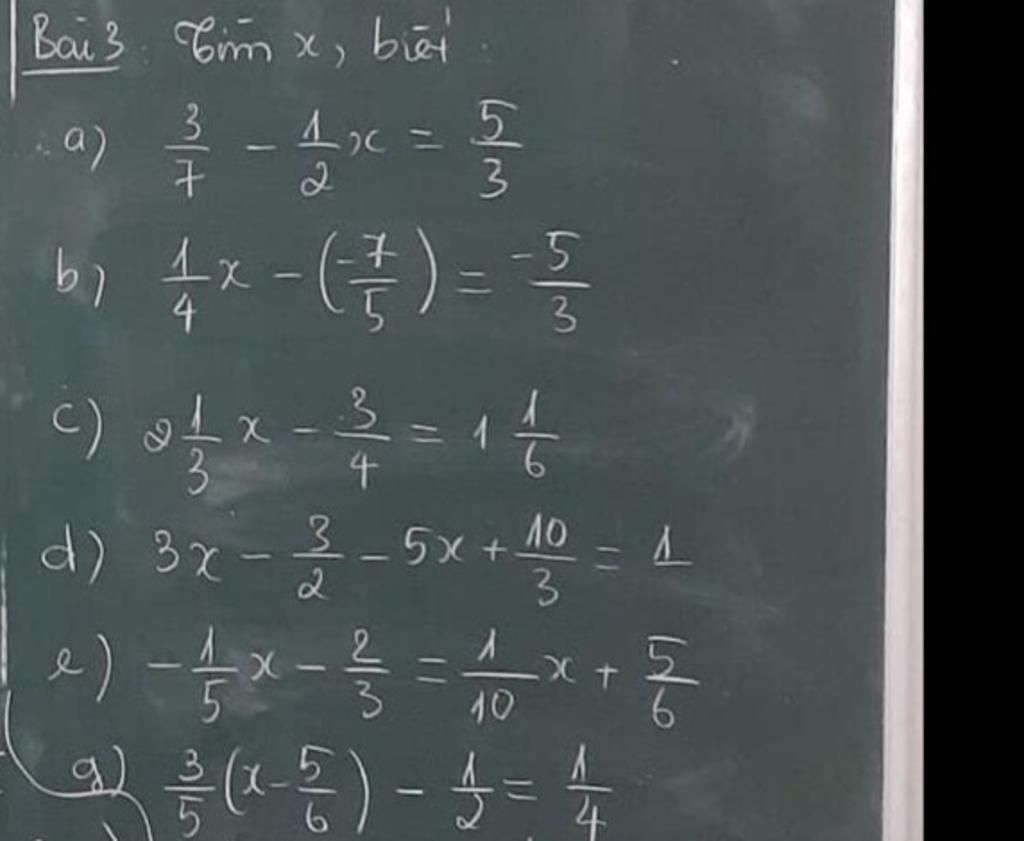 Bài 3: Tìm x, biết:
a) 3/7 - 1/2 x = 5/3
b) 1/4 x - (-7/5) = -5/3
c) 2 1/3 x - 3/4 = 1 1/6
d) 3x - 3/2 - 5x + 10/3 = 1
e) -1/5 x - 2/3 = 1/10 x + 5/6
g) 3/5 (x - 5/6) - 1/2 = 1/4